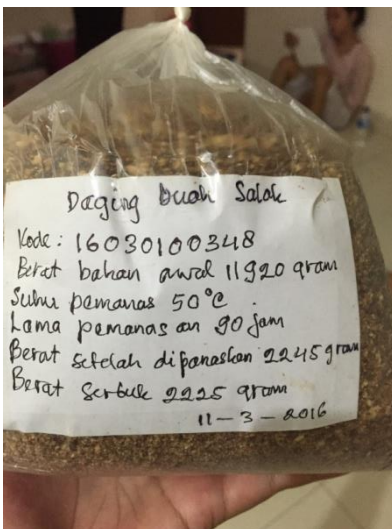 Daging buah Salak
Kode : 16030100348
Berat bahan awal 11920 gram
Suhu pemanas 50°C
Lama pemanas an 90 jam
Berat setelah dipanaskan 2245 gram
Berat Serbuk 2225 gram
11-3-2016